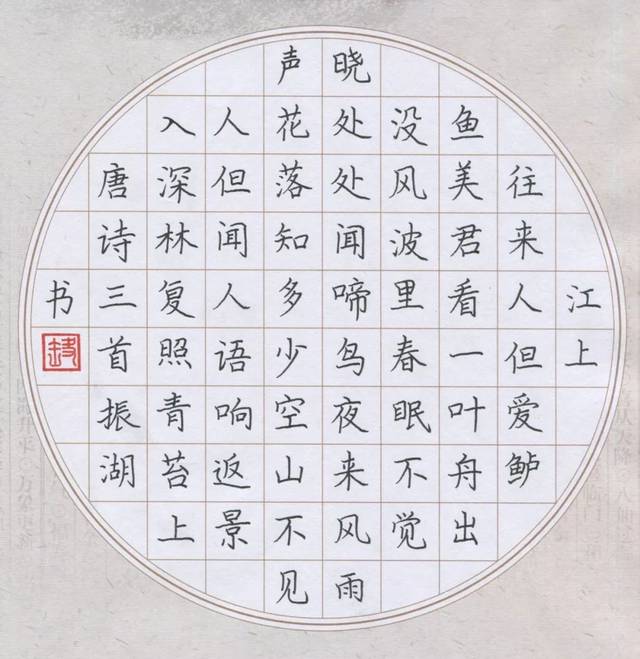 江上
往来人但爱鲈
鱼美君看一叶舟出
没风波里春眠不觉
晓处处闻啼鸟夜来风雨
声花落知多少空山不见
人但闻人语响返景
入深林复照青苔上
唐诗三首振湖
书